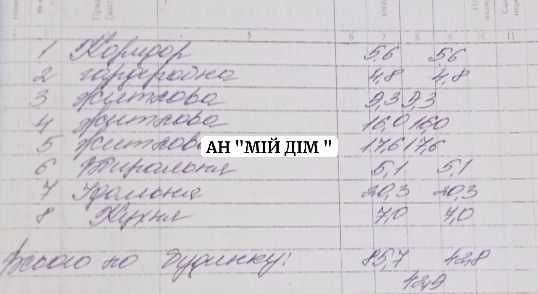 1 Коридор 5,6 5,6
2 гардеробна 4,8 4,8
3 житлова 9,3 9,3
4 житлова 16,0 16,0
5 житлова 17,6 17,6
АН "МІЙ ДІМ "
6 Вбиральня 5,1 5,1
7 Їдальня 20,3 20,3
8 Кухня 7,0 7,0
Всього по будинку: 85,7 42,8
42,9